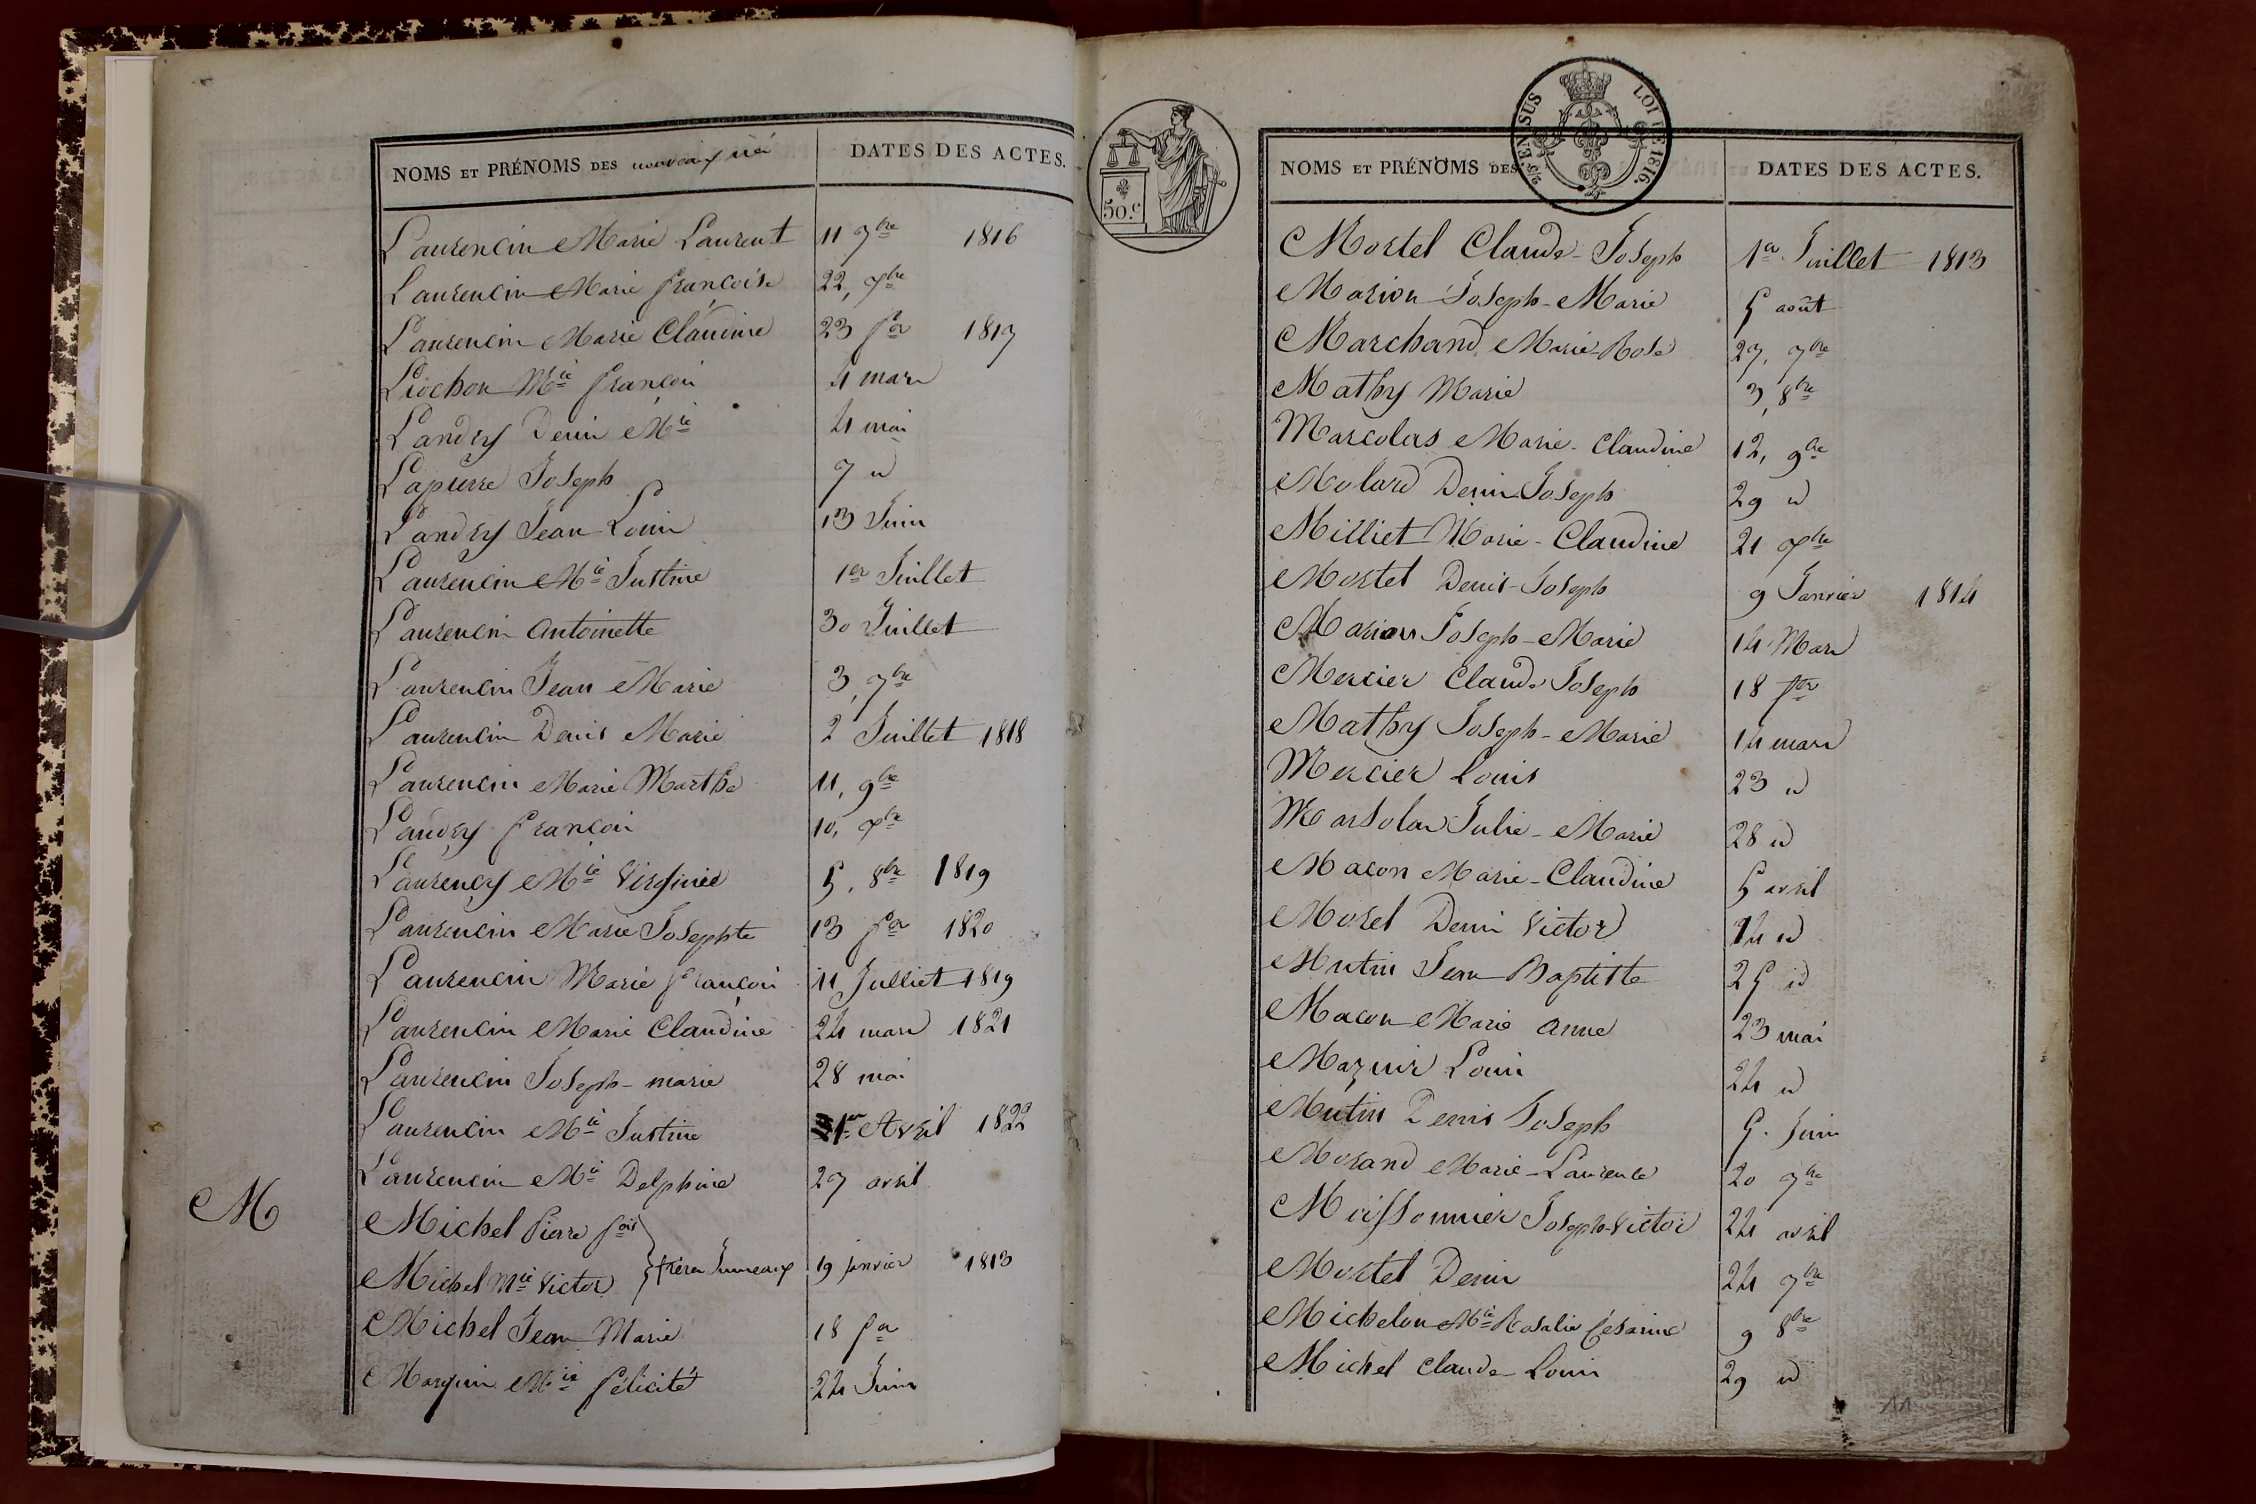 NOMS ET PRÉNOMS DES nouveaux né DATES DES ACTES.
Laurencin Marie Laurent 11 7bre 1816
Laurencin Marie françoise 22, xbre
Laurencin Marie Claudine 23 fer 1817
Liochon Mie françois 4 mars
Landry Denis Mie 4 mai
Lapierre Joseph 7 id
Landry Jean Louis 13 Juin
Laurencin Mie Justine 1er Juillet
Laurencin Antoinette 30 Juillet
Laurencin Jean Marie 3, 7bre
Laurencin Denis Marie 2 Juillet 1818
Laurencin Marie Marthe 11, 9bre
Landry françois 10, xbre
Laurency Mie Virginie 5, 8bre 1819
Laurencin Marie Josephte 13 fer 1820
Laurencin Marie françois 11 Julliet 1819
Laurencin Marie Claudine 24 mars 1821
Laurencin Joseph-marie 28 mai
Laurencin Mie Justine 1er Avril 1822
Laurencin Mie Delphine 27 avril
M
Michel Pierre fois
Michel Mie Victor frères Jumeaux 19 janvier 1813
Michel Jean Marie 18 fer
Marguin Mie félicité 24 Juin
50.c
25 EN SUS LOI DE 1816.
NOMS ET PRÉNOMS DES DATES DES ACTES.
Mortel Claude-Joseph 1er Juillet 1813
Marion Joseph-Marie 5 août
Marchand Marie-Rose 27, 7bre
Mathy Marie 3, 8bre
Marcolas Marie-Claudine 12, 9bre
Molard Denis Joseph 29 id
Milliet Marie-Claudine 21 xbre
Mortel Denis-Joseph 9 Janvier 1814
Marion Joseph-Marie 14 Mars
Mercier Claude Joseph 18 fer
Mathy Joseph-Marie 14 mars
Mercier Louis 23 id
Marsolas Julie-Marie 28 id
Macon Marie-Claudine 5 avril
Morel Denis Victor 14 id
Mutin Jean Baptiste 25 id
Macon Marie Anne 23 mai
Mazuir Louis 24 id
Mutin Denis Joseph 5. Juin
Morand Marie-Laurence 20 7bre
Moissonnier Joseph-Victor 24 avril
Mortel Denis 24 7bre
Michelon Mie Rosalie Césarine 9 8bre
Michel Claude Louis 29 id
11